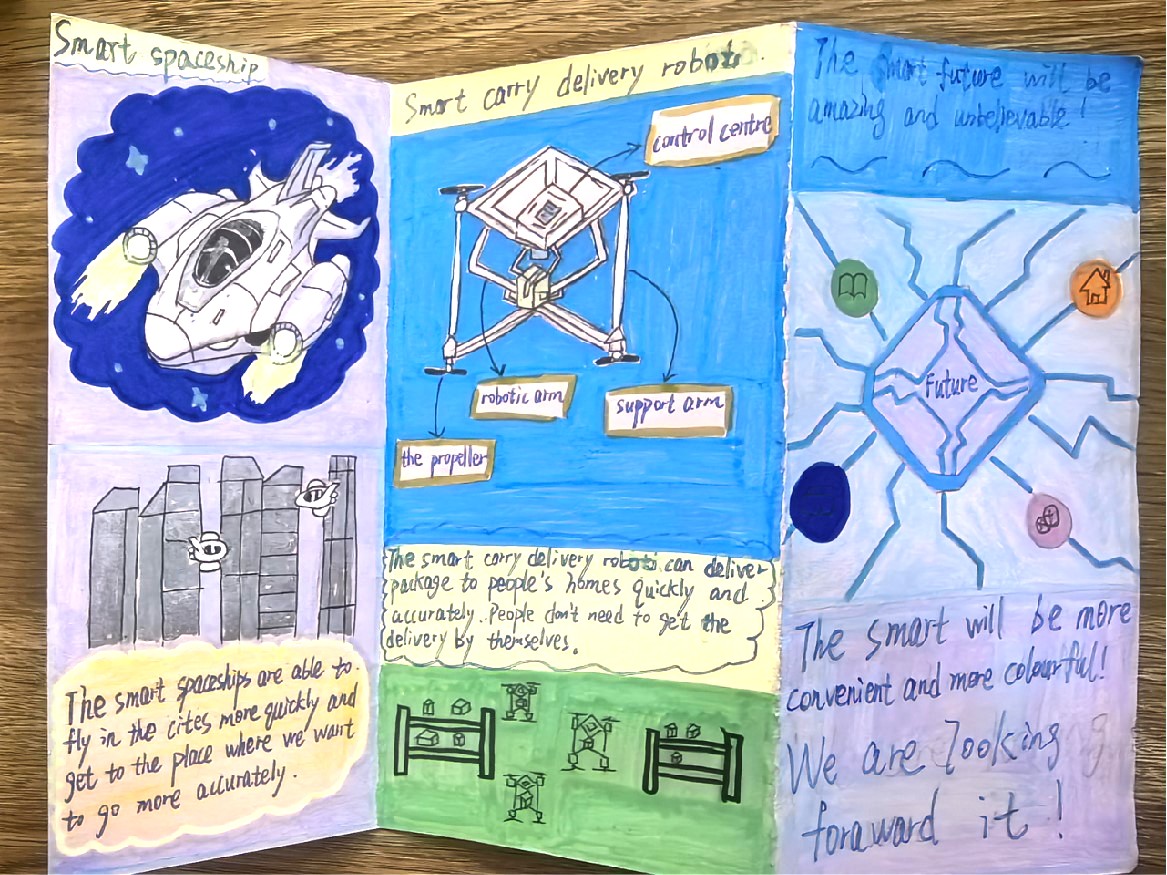 Smart spaceship
The smart spaceships are able to
fly in the cites more quickly and
get to the place where we want
to go more accurately.
Smart carry delivery robots.
control centre
robotic arm
support arm
the propeller
The smart carry delivery robots can deliver
package to people's homes quickly and
accurately. People don't need to get the
delivery by themselves.
The smart future will be
amazing and unbelievable!
Future
The smart will be more
convenient and more colourful!
We are looking
foraward it!